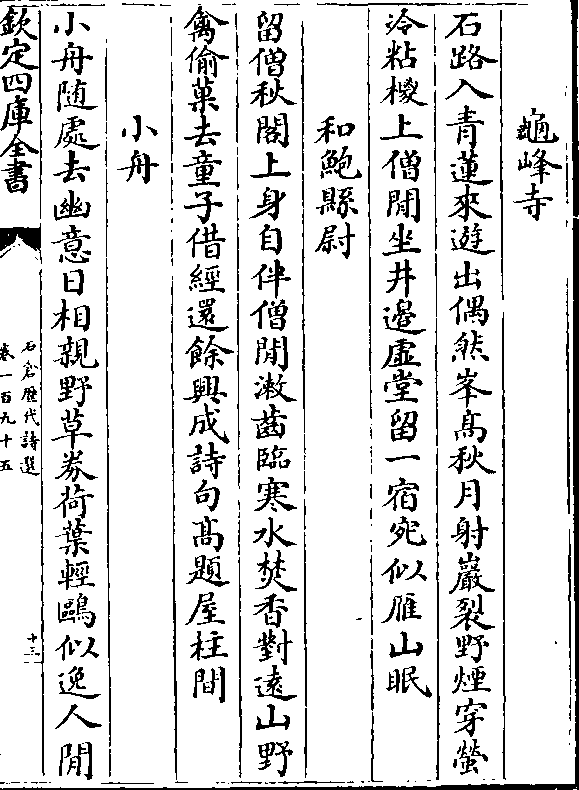 龜峰寺
石路入青蓮來遊出偶然峯髙秋月射巖裂野煙穿螢
冷粘椶上僧閒坐井邊虛堂留一宿宛似雁山眠
和鮑縣尉
留僧秋閣上身自伴僧閒漱齒臨寒水焚香對遠山野
禽偷菓去童子借經還餘興成詩句髙題屋柱間
小舟
小舟随處去幽意日相親野草勞荷葉輕鷗似逸人閒
欽定四庫全書
石倉歴代詩選
卷一百九十五
十三